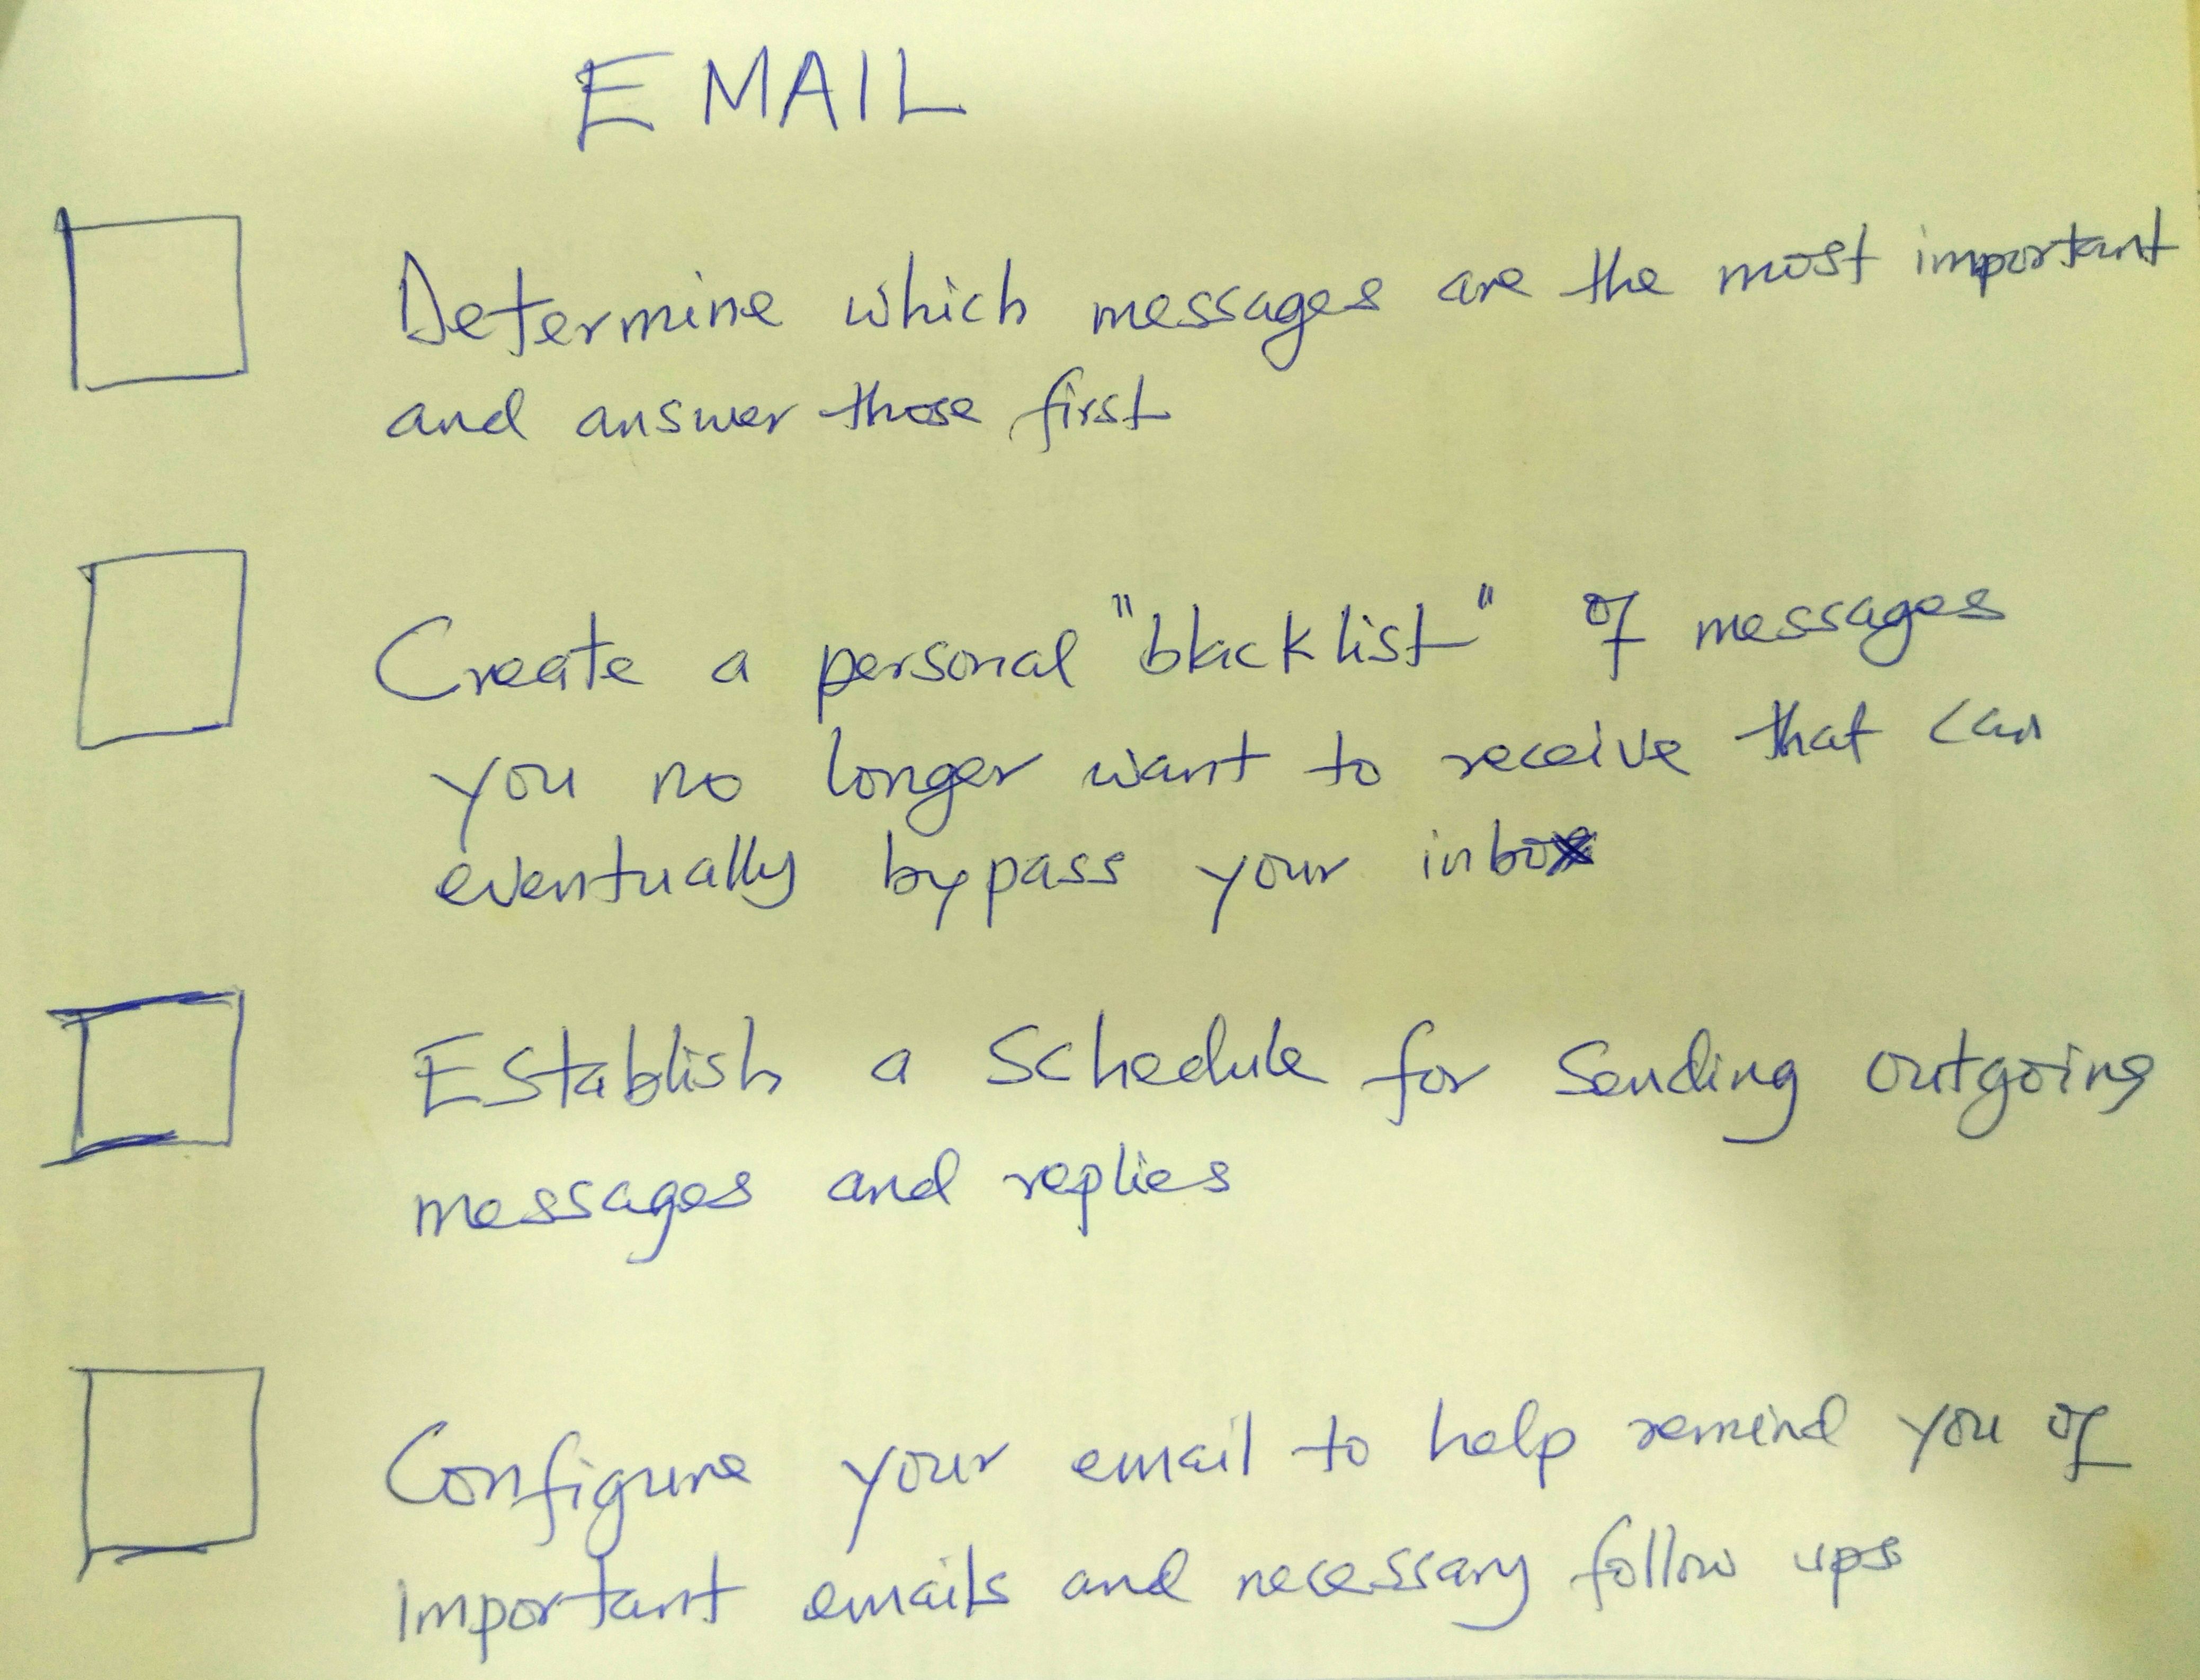 EMAIL
Determine which messages are the most important
and answer those first
Create a personal "blacklist" of messages
you no longer want to receive that can
eventually bypass your inbox
Establish a Schedule for Sending outgoing
messages and replies
Configure your email to help remind you of
important emails and necessary follow ups